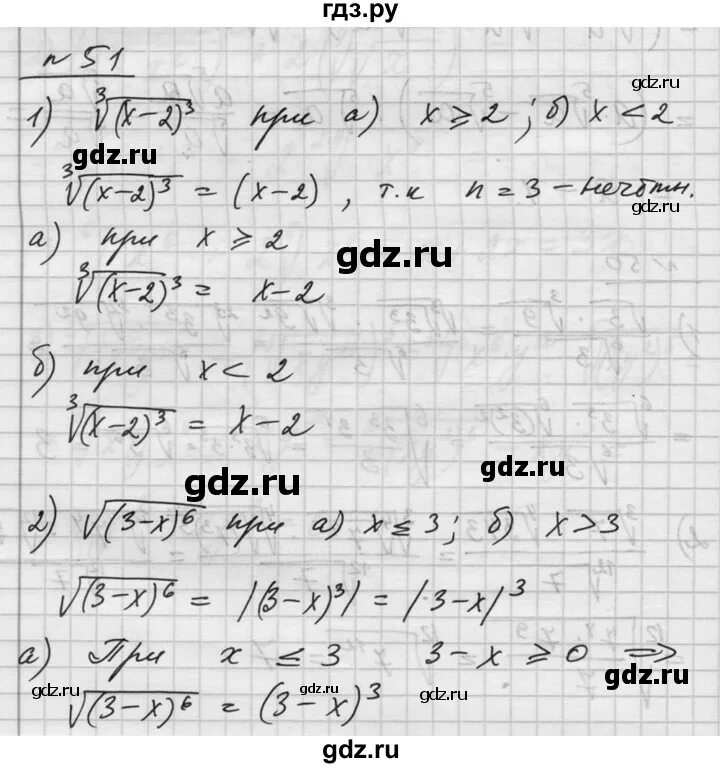 гдз.ру
№ 51
gdz.ru
1) ∛(x-2)³ при а) x ⩾ 2 ; б) x < 2
gdz.ru
∛(x-2)³ = (x-2) , т.к n = 3 - нечетн.
gdz.ru
а) при x ⩾ 2
gdz.ru
∛(x-2)³ = x-2
б) при x < 2
∛(x-2)³ = x-2
gdz.ru
gdz.ru
2) √(3-x)⁶ при а) x ≤ 3 ; б) x > 3
√(3-x)⁶ = |(3-x)³| = |3-x|³
а) При x ≤ 3 3-x ⩾ 0 ⇒
gdz.ru gdz.ru gdz.ru
√(3-x)⁶ = (3-x)³
gdz.ru